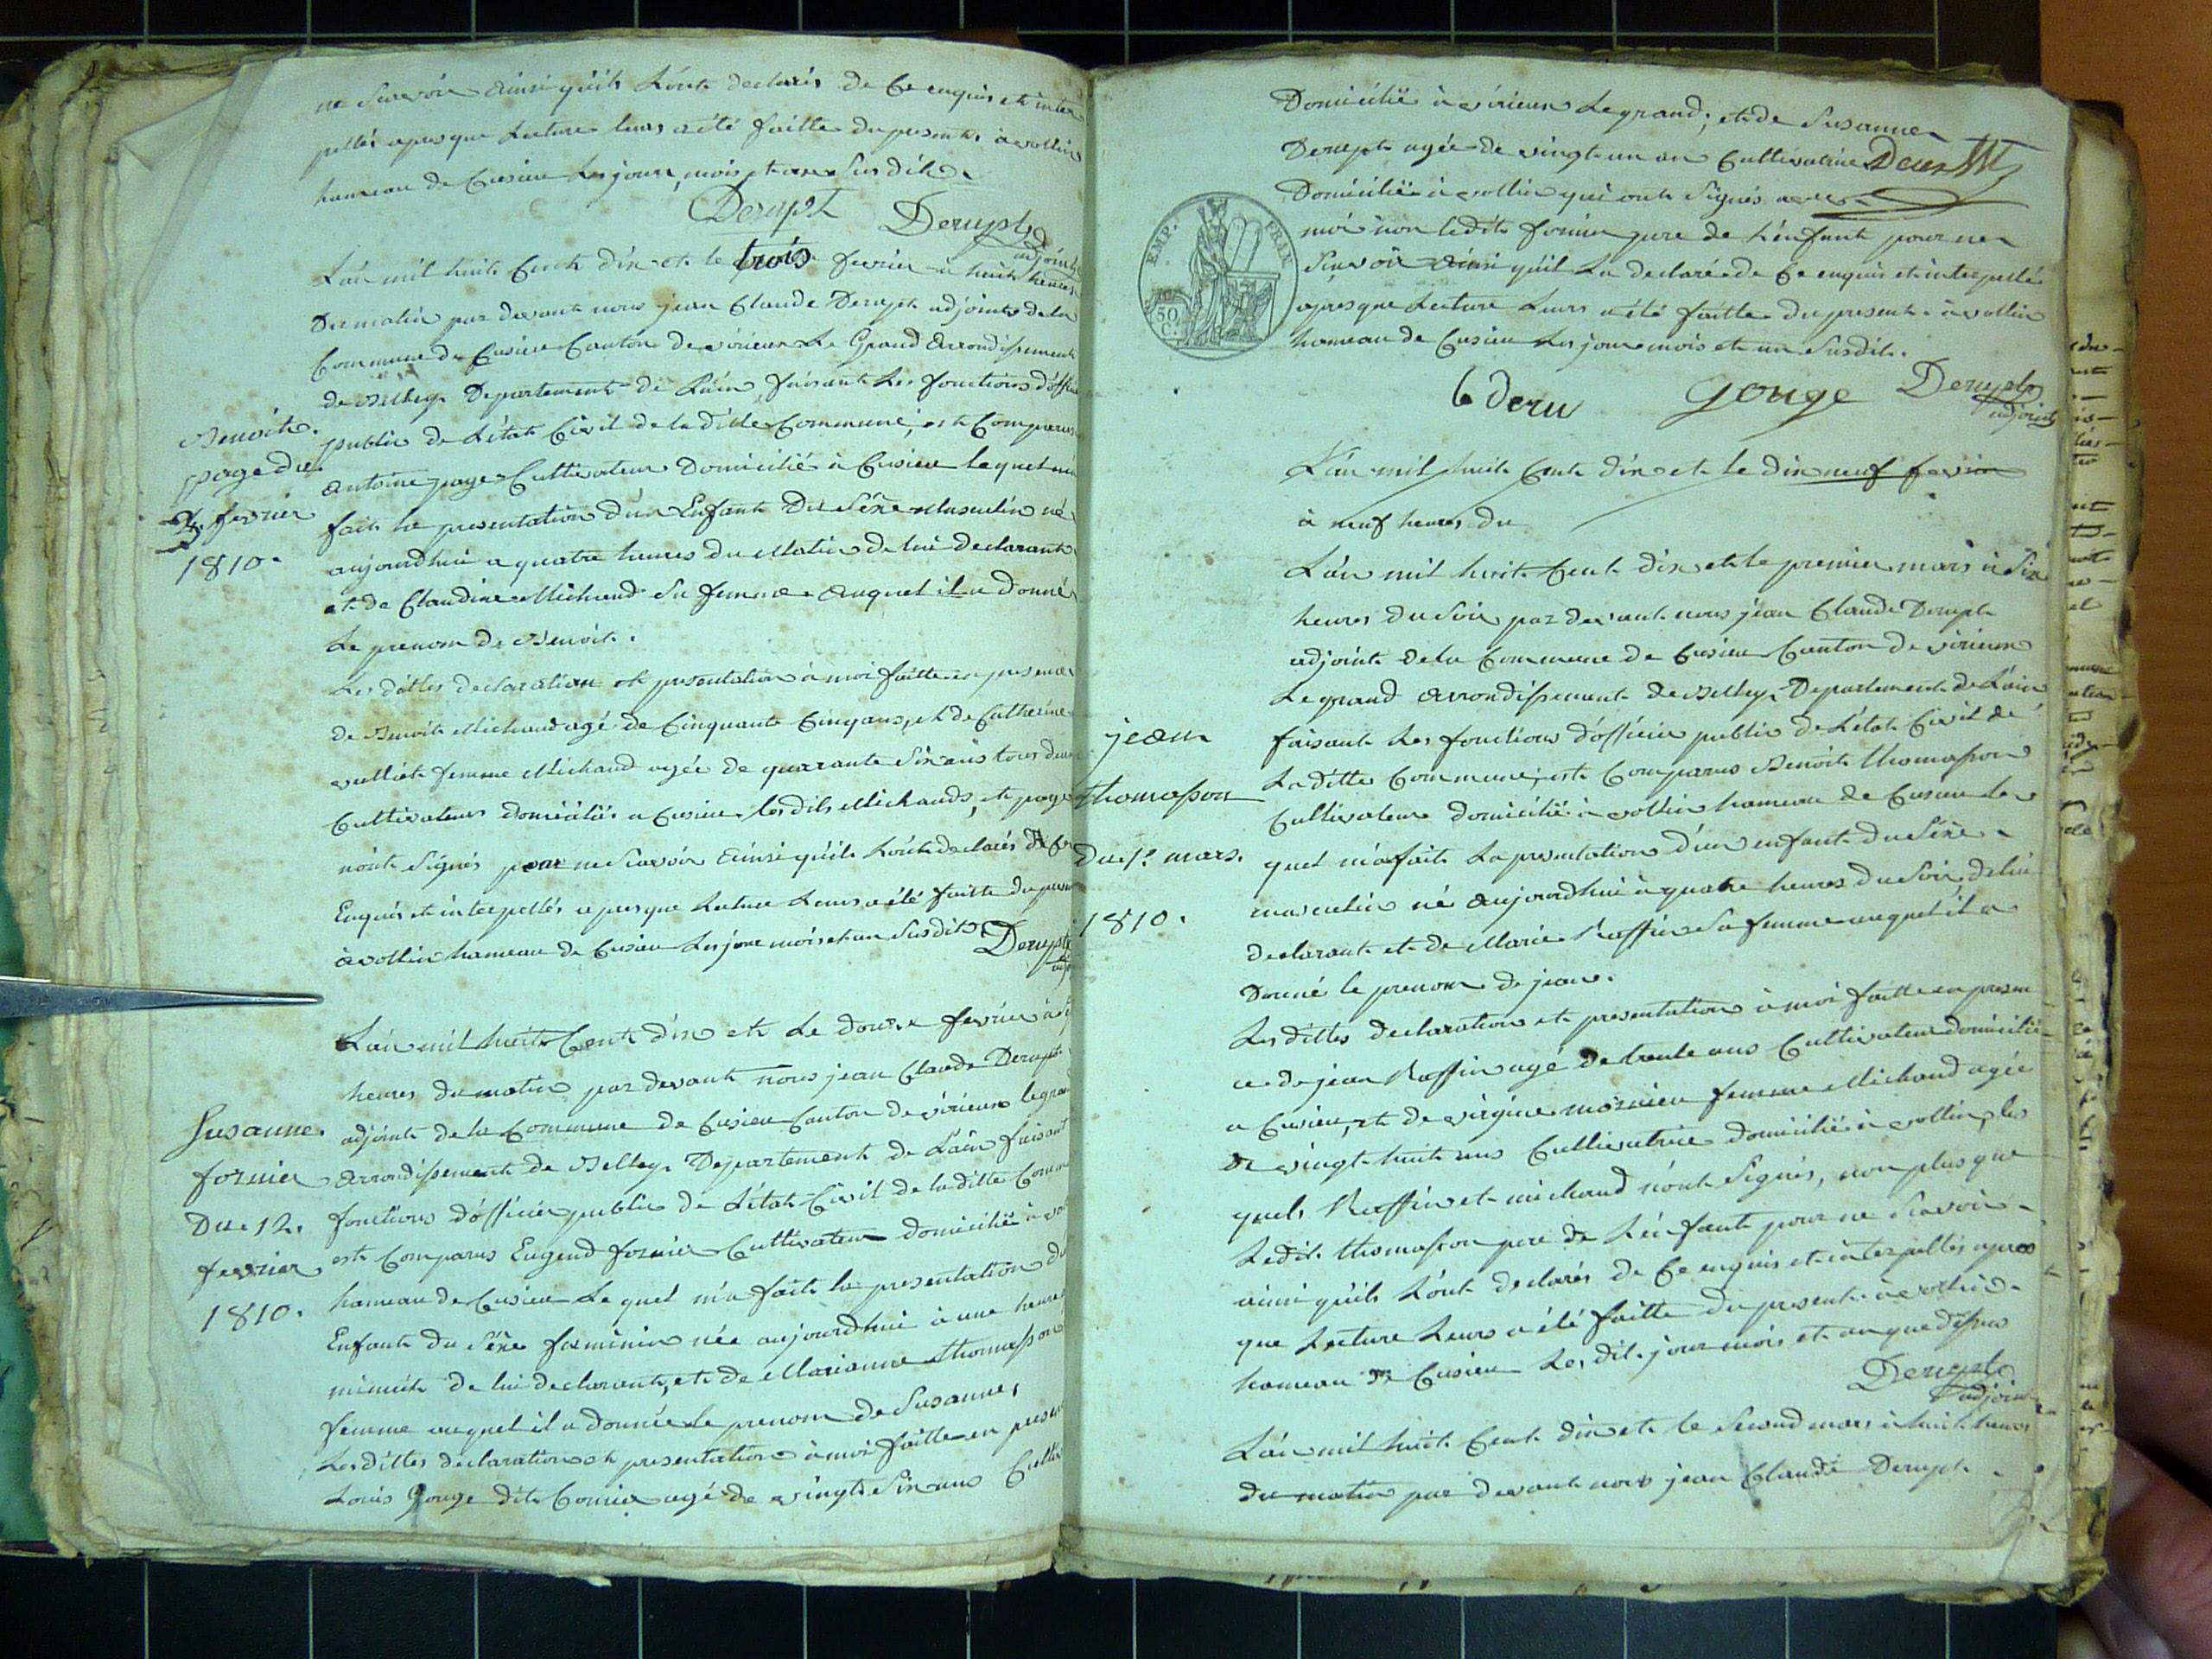 ne Scavoir ainsi qu'ils L'ont declarés de Ce enquis et inter
pellés apres que Lecture leurs a été faitte du present à vollin
hameau de Cusieu Les jour, mois et an Susdit.
Derupt Derupt
adjoint
L'an mil huit Cent dix et le trois fevrier à huit heures
Du matin par devant nous jean Claude Derupt adjoint de la
Commune de Cusieu Canton de virieux Le Grand arrondissement
de Belley Departement de L'ain, faisant Les fonctions d'offi
public de L'état Civil de la ditte Commune, est Comparus
antoine page Cultivateur Domicilié à Cusieu lequel m'a
fait la presentation d'un Enfant Du Séxe Masculin né
aujourdhui a quatre heures du Matin de lui Declarant
et de Claudine Michaud Sa femme auquel il a Donné
Le prenom de Benoit.
Benoit
page du
3. fevrier
1810.
Les dittes declaration et presentation à moi faitte en presence
de Benoit Michaud agé de Cinquante Cinq ans, et de Catherine
vulliet femme Michaud agée de quarante Six ans tous deux
Cultivateurs domiciliés a Cusieu. les dits Michauds, et page
n'ont Signés pour ne Scavoir ainsi qu'ils L'ont declarés de Ce
Enquis et interpellés apres que Lecture Leurs a été faitte du presen
à vollin hameau de Cusieu Les jour mois et an Susdit. Derupt
adj
L'an mil huit Cent dix et Le douze fevrier à
heures du matin par devant nous jean Claude Derupt
adjoint de la Commune de Cusieu Canton de virieux le grand
arrondissement de Belley Departement de L'ain faisant
fonctions d'officier public de L'état Civil de la ditte Comm
est Comparus Eugend fornier Cultivateur domicilié à vol
hameau de Cusieu Le quel m'a fait la presentation d'u
Enfant du Séxe feminin née aujourdhui à une heures
minuit de lui declarant, et de Marianne thomasson
femme auquel il a donnée le prenom de Susanne,
Les dittes declaration et presentation à moi faitte en presen
Louis Gouge dit Cornier agé de vingt Six ans Cultiv
Susanne
fornier
Du 12.
fevrier
1810.
Domicilié à virieux Le grand; et de Susanne
Derupt agée de vingt un an Cultivatrice
Domicilié à vollin qui ont Signés avec
moi non ledit fornier pere de L'enfant pour ne
Scavoir ainsi qu'il La declaré de Ce enquis et interpellé
apres que Lecture Leurs a été faitte du present à vollin
hameau de Cusieu Les jour mois et an Susdit.
EMP. FRAN
50
C.
Deru Gouge Derupt
adjoint
L'an mil huit Cent dix et le dix neuf fevrier
à neuf heures du
L'an mil huit Cent dix et le premier mars à Six
heures Du Soir par devant nous jean Claude Derupt
adjoint de la Commune de Cusieu Canton de virieux
Le grand arrondissement de Belley Departement de L'ain
faisant Les fonctions d'officier public de L'état Civil de
La ditte Commune, est Comparus Benoit thomasson
Cultivateur domicilié à vollin hameau de Cusieu Le
quel m'a fait La presentation d'un enfant du Séxe
masculin né aujourdhui à quatre heures du Soir de lui
declarant et de Marie Ruffin Sa femme auquel il a
Donné le prenom de jean.
jean
thomasson
Du 1er mars.
1810.
Les dittes declaration et presentation à moi faitte en presen
ce de jean Ruffin agé de trente ans Cultivateur domicilié
a Cusieu, et de virginie mornieu femme Michaud agée
De vingt huit ans Cultivatrice domicilié à vollin, les
quels Ruffin et michaud n'ont Signés, non plus que
Ledit thomasson pere de L'enfant pour ne Scavoir
ainsi qu'ils L'ont declarés de Ce enquis et interpellés apres
que Lecture Leurs a été faitte du present à vollin
hameau de Cusieu Les dit jour mois et an que dessus
Derupt
adjoint
L'an mil huit Cent dix et le Second mars à huit heures
du matin par devant nous jean Claude Derupt